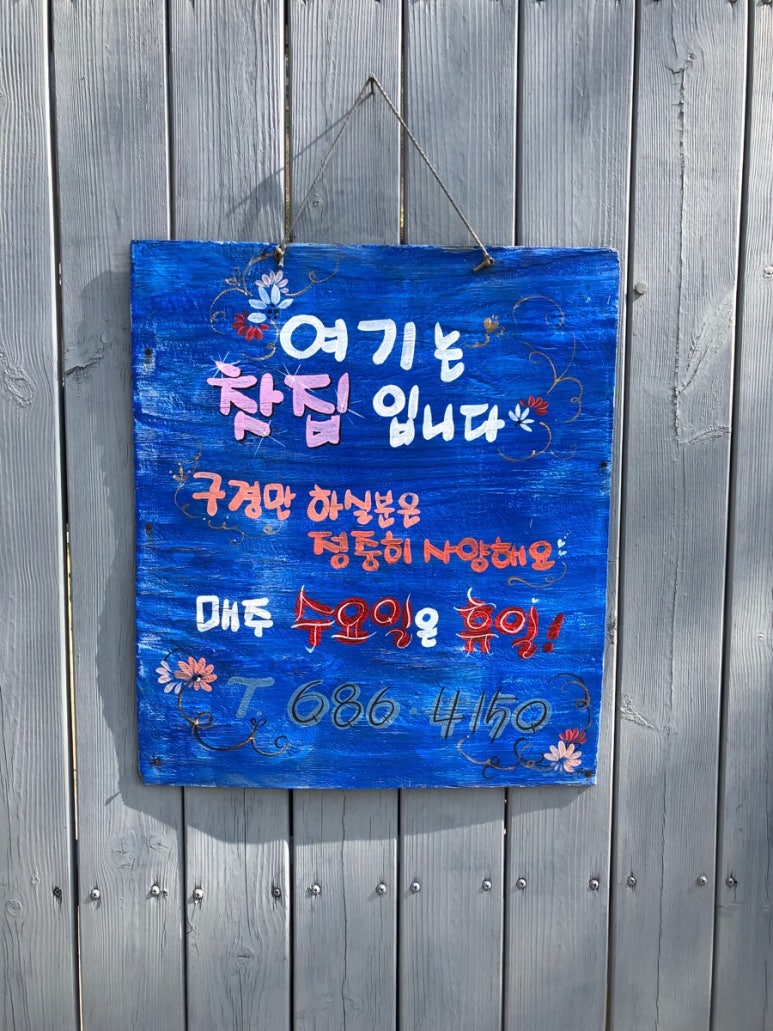 여기는
찻집 입니다
구경만 하실분은
정중히 사양해요
매주 수요일은 휴일!
T. 686-4150